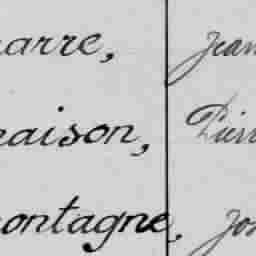 narre, Jean
raison, Pierr
ontagne, Jos